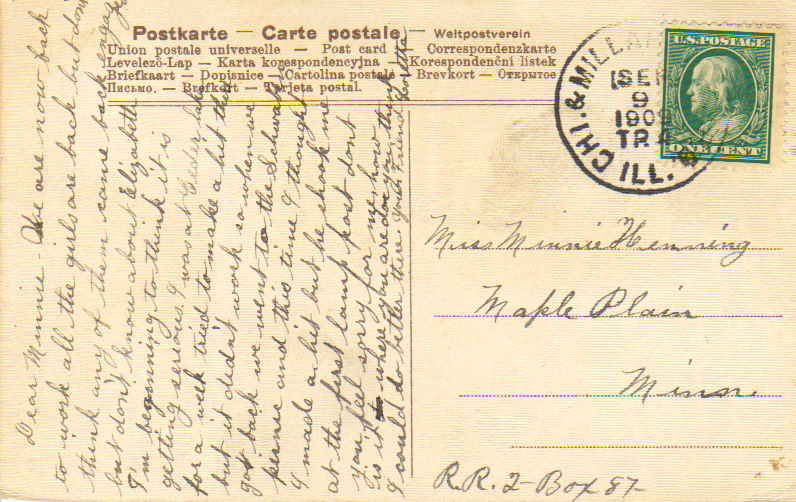 Postkarte — Carte postale — Weltpostverein
Union postale universelle — Post card — Correspondenzkarte
Levelező-Lap — Karta korespondencyjna — Korespondenční lístek
Briefkaart — Dopisnice — Cartolina postale — Brevkort — Открытое
Письмо. — Brefkort — Tarjeta postal.
CHI. & MIL
SEP
9
1909
TR 4
ILL.
U.S. POSTAGE
ONE CENT
Miss Minnie Henning
Maple Plain
Minn.
R.R. 2 - Box 87 -
Dear Minnie - We are now back
to work all the girls are back but don't
think any of them came back engaged
but don't know about Elizabeth
I'm beginning to think it is
getting serious. I was at Ceeder Lake
for a week tried to make a hit there
but it didn't work so when we
got back we went to the
picnic and this time I thought
I made a hit but he shook me
at the first lamp post dont
you feel sorry for me how
is it where you are do you think
I could do better there Your Friend Loretta